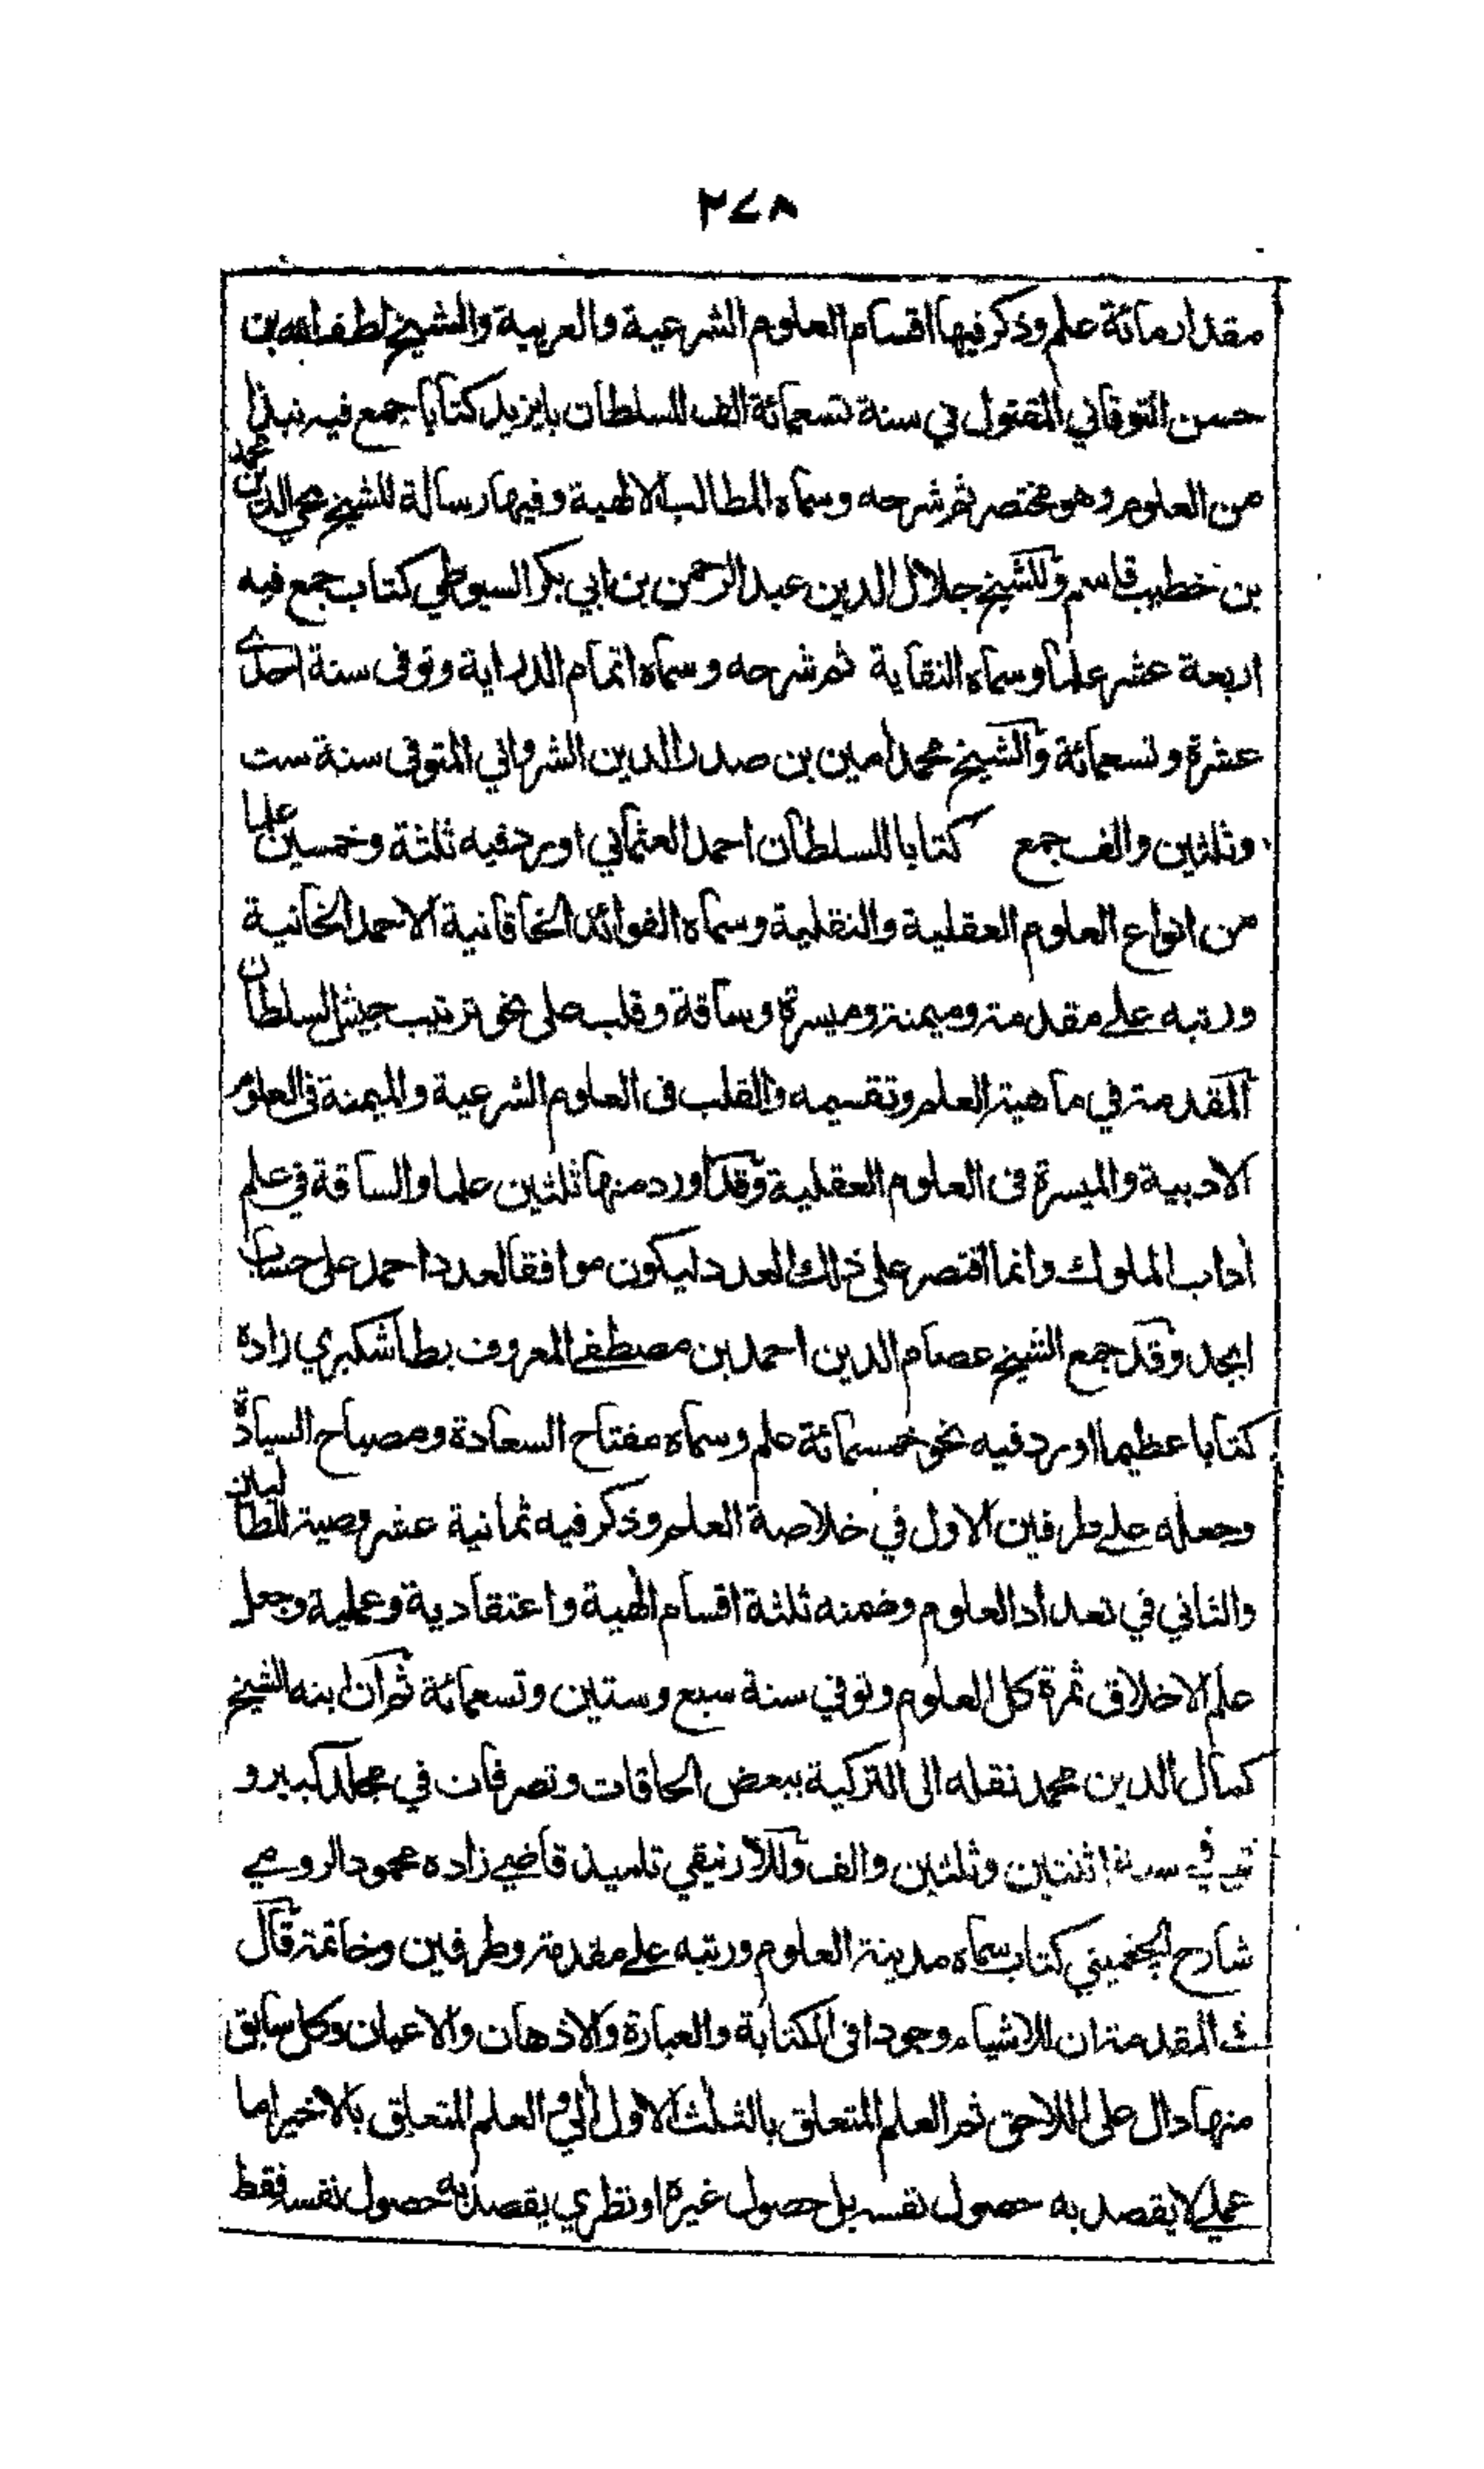 ٢٧٨
مقدار مائة علم وذكر فيها اقسام العلوم الشرعية والعربية والشيخ لطف الله بن
حسن التوقاتي المقتول في سنة تسعمائة الف للسلطان بايزيد كتابا جمع فيه نبذا
من العلوم وهو مختصر ثم شرحه وسماه المطالب الالهية وفيها رسالة للشيخ محي الدين محمد
بن خطيب قاسم وللشيخ جلال الدين عبد الرحمن بن ابي بكر السيوطي كتاب جمع فيه
اربعة عشر علما وسماه النقاية ثم شرحه وسماه اتمام الدراية وتوفى سنة احدى
عشرة وتسعمائة والشيخ محمد امين بن صدر الدين الشرواني المتوفى سنة ست
وثلثين والف جمع كتابا للسلطان احمد العثماني اورد فيه ثلثة وخمسين علما
من انواع العلوم العقلية والنقلية وسماه الفوائد الخاقانية الاحمد الخانية
ورتبه على مقدمة وميمنة وميسرة وساقة وقلب على نحو ترتيب جيش السلطان
المقدمة في ماهية العلم وتقسيمه والقلب في العلوم الشرعية والميمنة في العلوم
الادبية والميسرة في العلوم العقلية وقد اورد منها ثلثين علما والساقة في علم
اداب الملوك وانما اقتصر على ذلك العدد ليكون موافقا لعدد احمد على حساب
ابجد وقد جمع الشيخ عصام الدين احمد بن مصطفى المعروف بطاشكبري زادة
كتابا عظيما اورد فيه نحو خمسمائة علم وسماه مفتاح السعادة ومصباح السيادة
وجعله على طرفين الاول في خلاصة العلم وذكر فيه ثمانية عشر وصية للطالبين
والثاني في تعداد العلوم وضمنه ثلثة اقسام الهية واعتقادية وعملية وجعل
علم الاخلاق ثمرة كل العلوم وتوفي سنة سبع وستين وتسعمائة ثم ان ابنه الشيخ
كمال الدين محمد نقله الى التركية ببعض الحاقات وتصرفات في مجلد كبير و
في سنة اثنتين وثلثين والف وللارنيقي تلميذ قاضي زاده محمود الرومي
شارح الچغميني كتاب سماه مدينة العلوم ورتبه على مقدمة وطرفين وخاتمة قال
المقدمة ان للاشياء وجودا في الكتابة والعبارة والاذهان والاعيان وكل سابق
منها دال على اللاحق ثم العلم المتعلق بالثلث الاول الي والعلم المتعلق بالاخير اما
عملي لا يقصد به حصول نفسه بل حصول غيره او نظري يقصد به حصول نفسه فقط